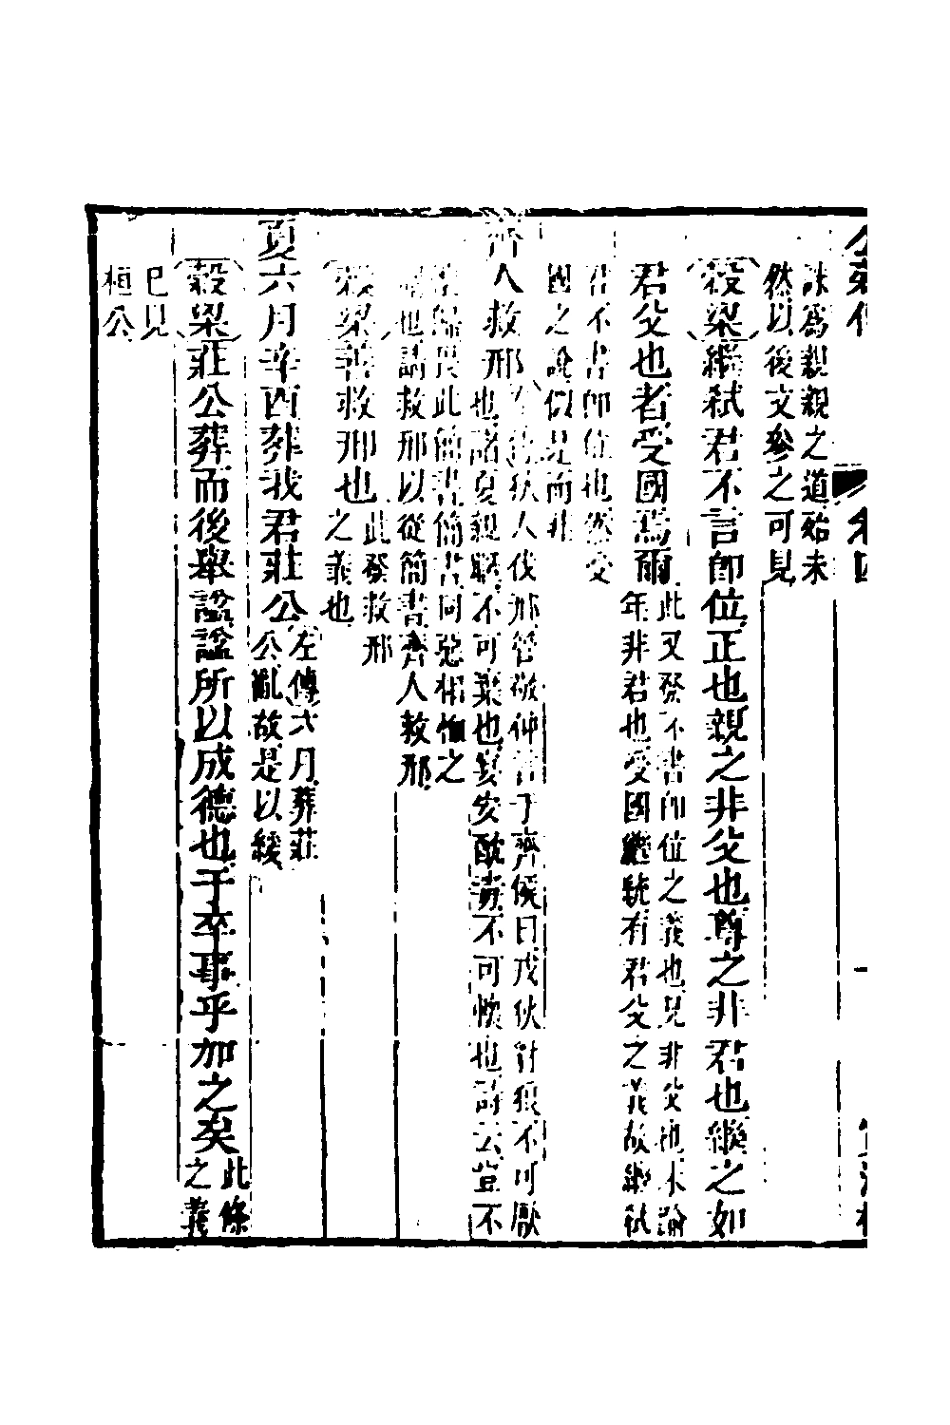 誅爲親親之道始未
然以後文參之可見
穀梁繼弒君不言卽位正也親之非父也尊之非君也繼之如
君父也者受國焉爾
此又發不書卽位之義也兄非父也未踰
年非君也受國繼統有君父之義故繼弒
君不書卽位也然受
國之說似是而非
齊人救邢
左傳狄人伐邢管敬仲言于齊侯曰戎狄豺狼不可厭
也諸夏親暱不可棄也宴安酖毒不可懷也詩云豈不
懷歸畏此簡書簡書同惡相恤之
謂也請救邢以從簡書齊人救邢
穀梁善救邢也
此發救邢
之義也
夏六月辛酉葬我君莊公
左傳六月葬莊
公亂故是以緩
穀梁莊公葬而後舉諡諡所以成德也于卒事乎加之矣
此條
之義
已見
桓公